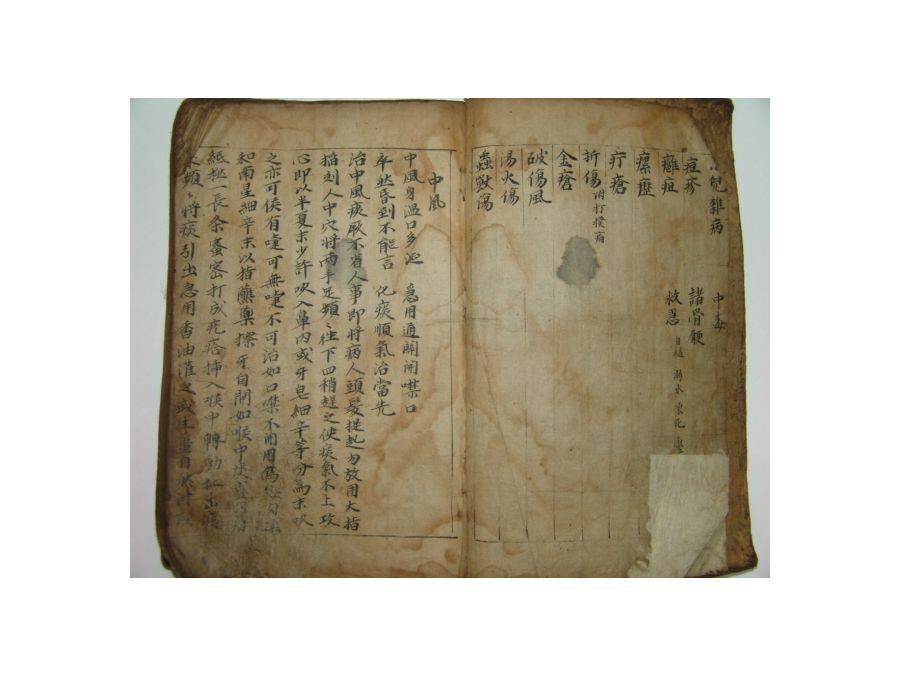 兒雜病 中毒
痘疹 諸骨鯁
癰疽 救急 自縊 溺水 凍死
瘰癧
疔瘡
折傷 附打撲痛
金瘡
破傷風
湯火傷
蟲獸傷
中風
中風身溫口多涎 急用通關開噤口
卒然昏到不能言 化痰順氣治當先
治中風痰厥不省人事即將病人頭髮提起勿放用大指
掐刻人中穴將兩手足頻〻往下四稍趕之使痰氣不上攻
心即以半夏末少許吹入鼻內或牙皂細辛等分為末吹
之亦可侯有嚏可無嚏不可治如口噤不開用烏
和南星細辛末以指蘸藥擦牙自開如喉中痰
紙撚一長条蜜打成挿入喉中轉動扯出
頻〻將痰引出急用香油灌之或生薑自然汁